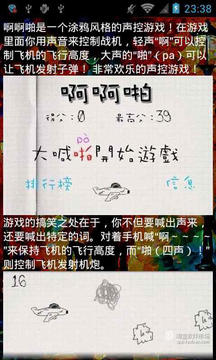 23:38
啊啊啪是一个涂鸦风格的声控游戏!在游戏
里面你用声音来控制战机,轻声“啊”可以控
制飞机的飞行高度,大声的“啪”(pa)可以
让飞机发射子弹! 非常欢乐的声控游戏!
啊啊啪
得分:0 最高分:39
PÀ
大喊啪開始遊戲
排行榜 信息
游戏的搞笑之处在于,你不但要喊出声来,
还要喊出特定的词。对着手机喊“啊。。。
”来保持飞机的飞行高度,而“啪(四声)!”
则控制飞机发射机炮。
16